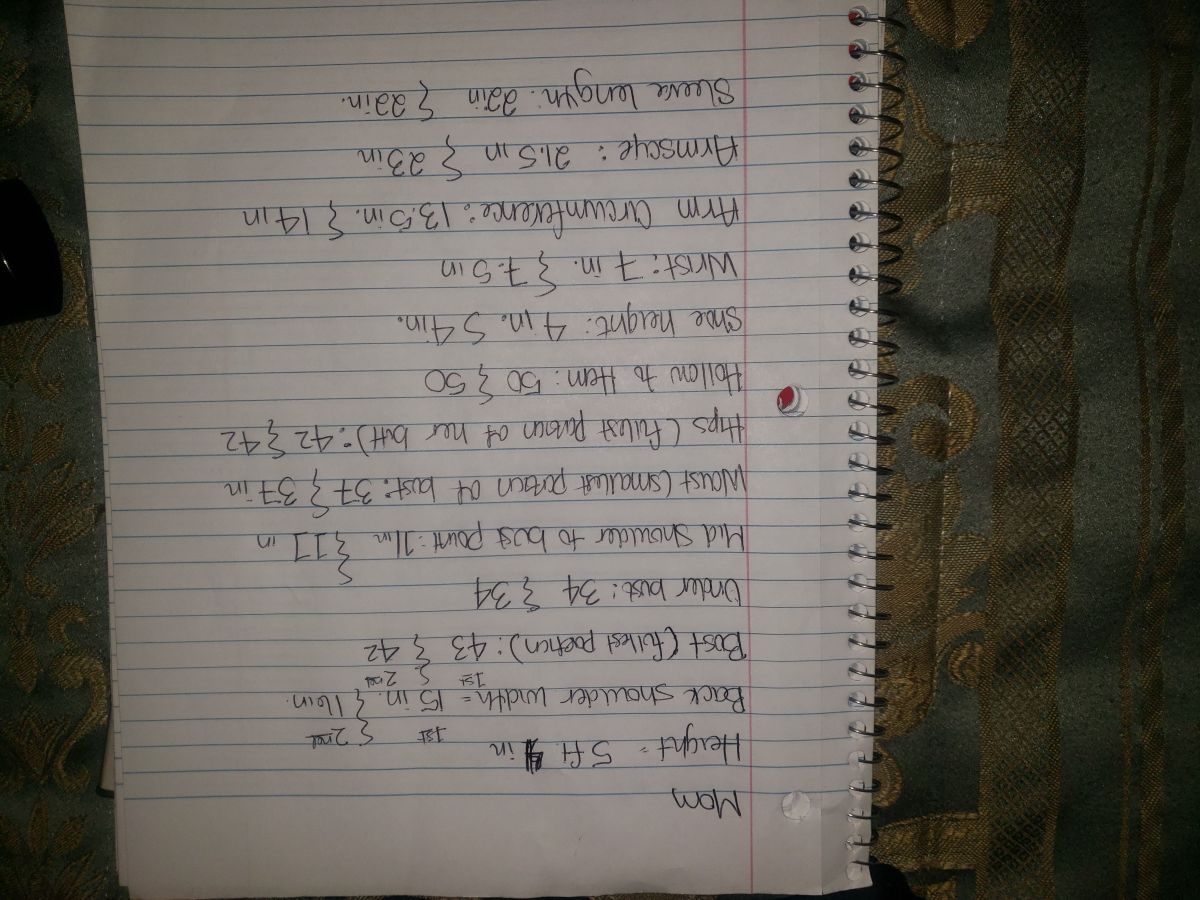 Mom
Height = 5 ft 4 in
1st { 2nd
Back shoulder width = 15 in. { 16in.
1st { 2nd
Bust (fullest portion): 43 { 42
Under bust: 34 { 34
Mid shoulder to bust point: 11in { 11 in
Waist (smallest portion of bust: 37 { 37 in
Hips (fullest portion of her butt): 42 { 42
Hollow to Hem: 50 { 50
Shoe height: 4 in. { 4in.
Wrist: 7 in. { 7.5 in
Arm Circumference: 13.5 in. { 14 in
Armscye: 21.5 in { 23 in
Sleeve length: 22in { 22in.